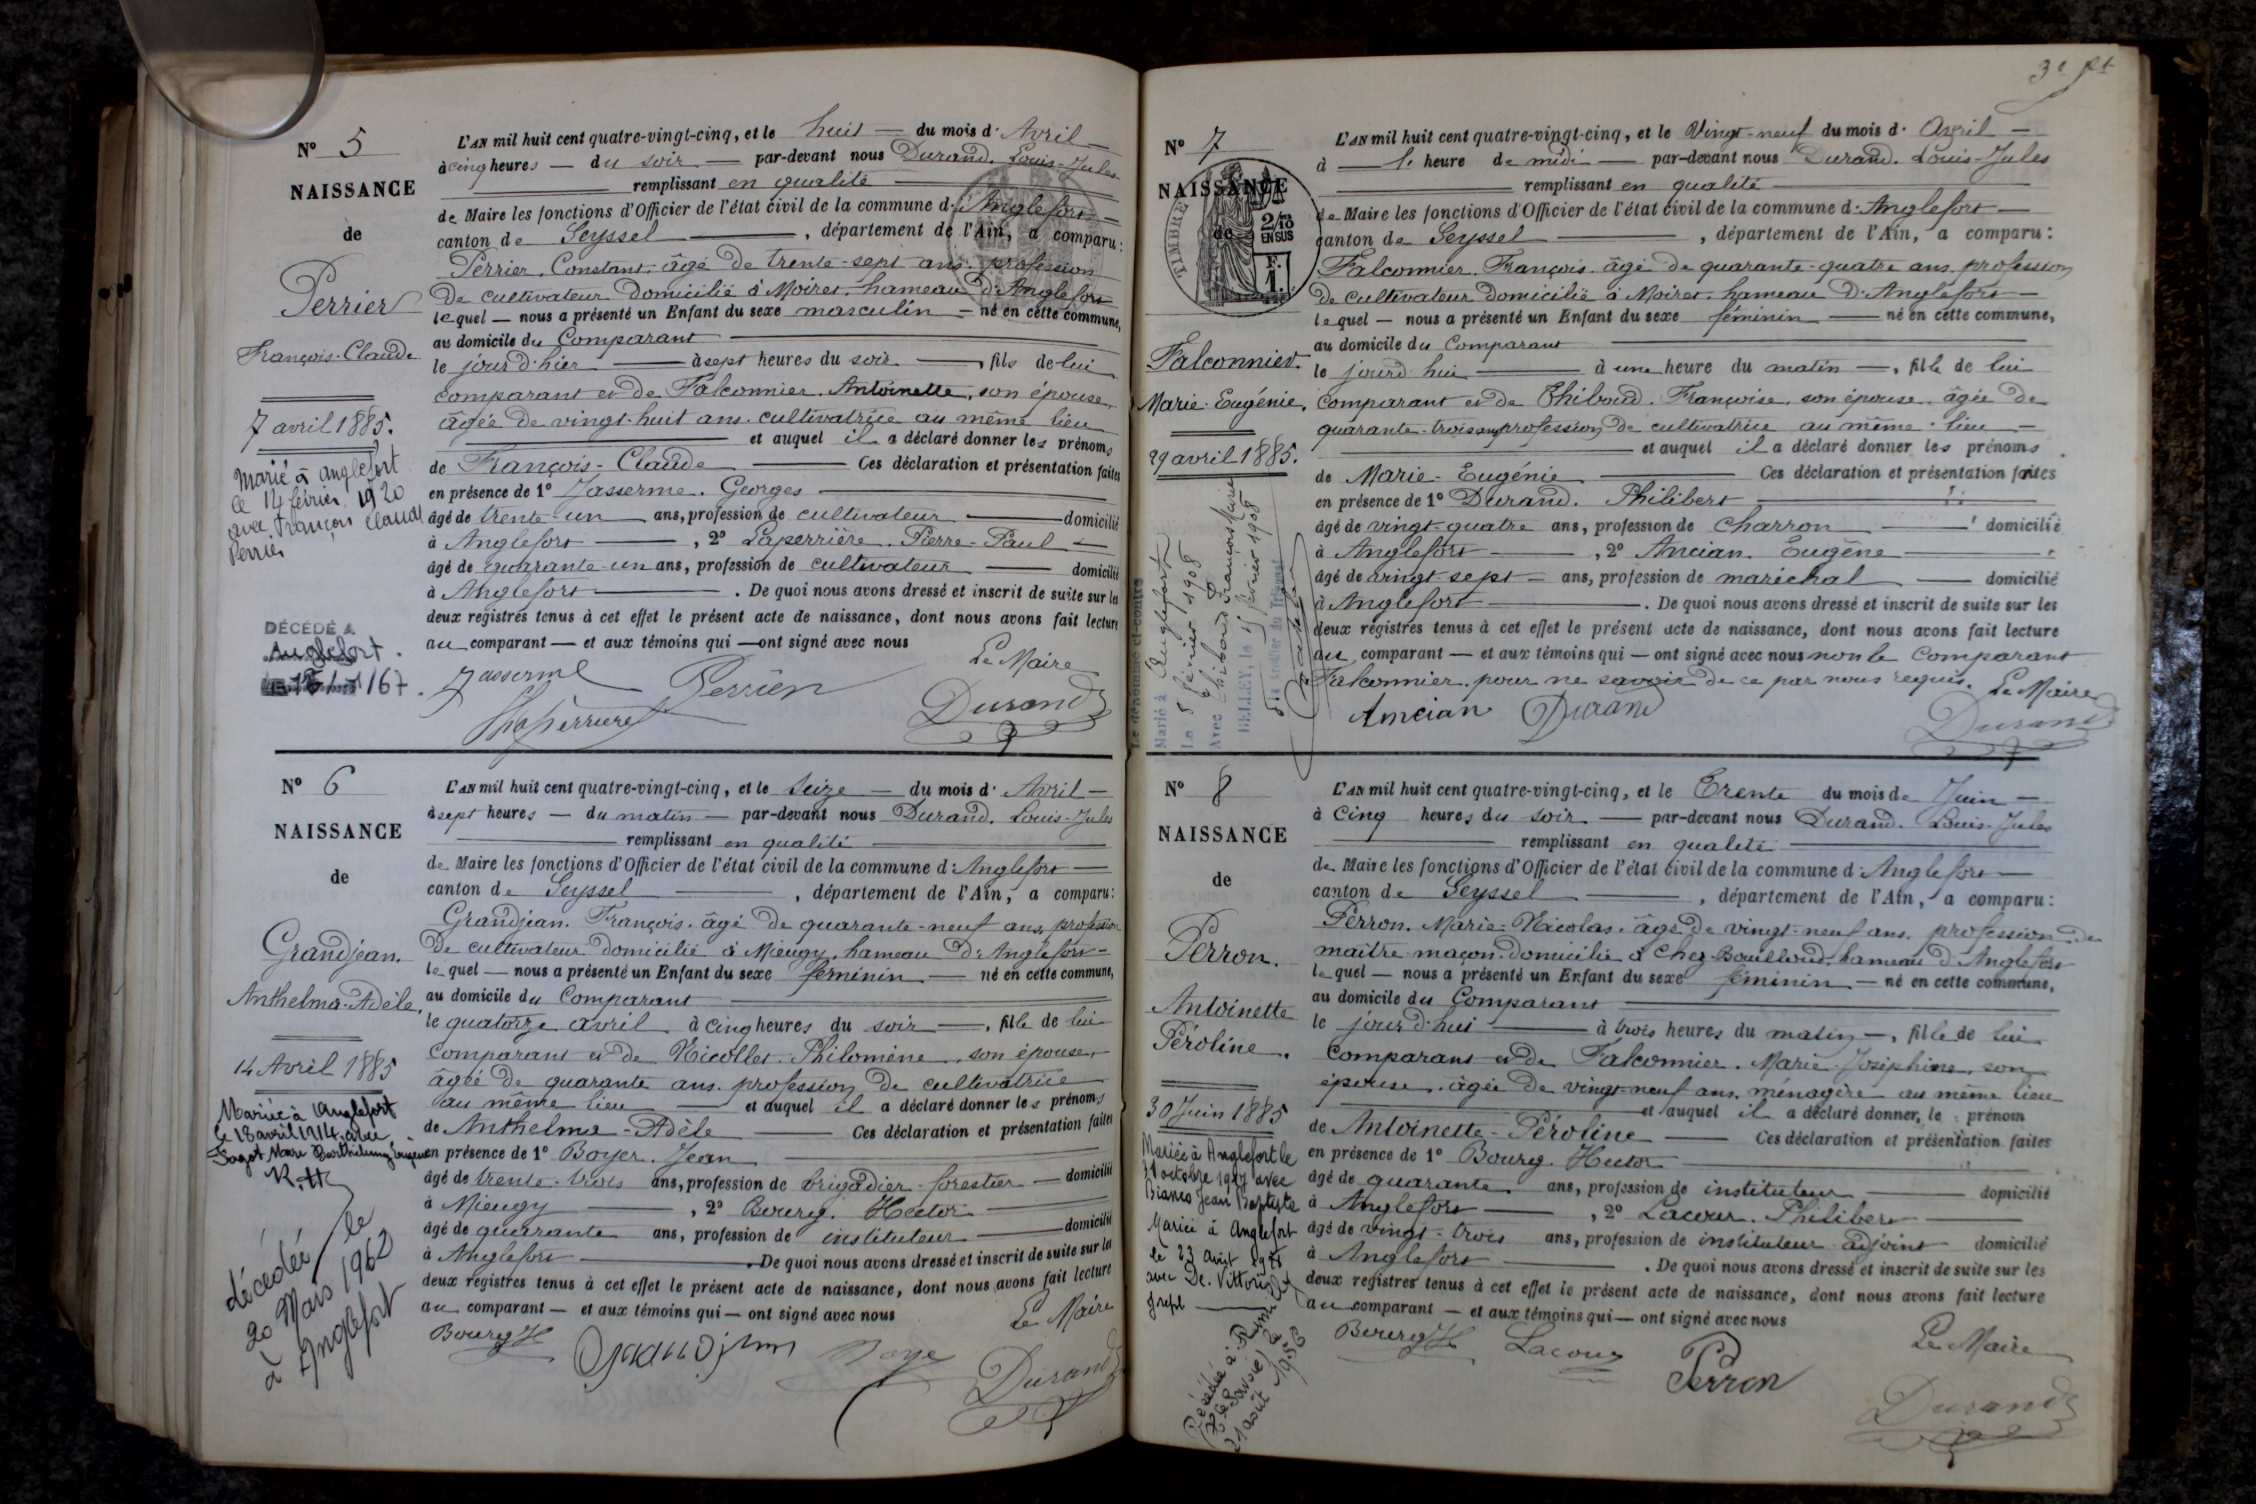 N° 5
NAISSANCE
de
Perrier
François-Claude
7 avril 1885.
Marié à Anglefort
le 14 février 1920
avec François Claudy
Perrier
DÉCÉDÉ A
Anglefort.
L'AN mil huit cent quatre-vingt-cinq, et le huit — du mois d' Avril —
à cinq heures — du soir — par-devant nous Durand. Louis-Jules
remplissant en qualité
de Maire les fonctions d'Officier de l'état civil de la commune d' Anglefort —
canton de Seyssel — , département de l'Ain, a comparu:
Perrier. Constant. âgé de trente-sept ans. profession
de cultivateur domicilié à Moiret. hameau d'Anglefort
lequel — nous a présenté un Enfant du sexe masculin — né en cette commune,
au domicile du Comparant
le jour d'hier — à sept heures du soir —, fils de lui
comparant et de Falconnier. Antoinette, son épouse,
âgée de vingt-huit ans. cultivatrice au même lieu
et auquel il a déclaré donner les prénoms
de François-Claude — Ces déclaration et présentation faites
en présence de 1° Jasserme. Georges
âgé de trente-un — ans, profession de cultivateur — domicilié
à Anglefort — , 2° Laperrière. Pierre-Paul —
âgé de quarante-un ans, profession de cultivateur — domicilié
à Anglefort — . De quoi nous avons dressé et inscrit de suite sur les
deux registres tenus à cet effet le présent acte de naissance, dont nous avons fait lecture
au comparant — et aux témoins qui — ont signé avec nous
Le Maire
Jasserme Perrier
Laperrière Durand
N° 6
NAISSANCE
de
Grandjean.
Anthelma-Adèle,
14 Avril 1885
Mariée à Anglefort
le 18 avril 1914 avec
Fagot Marie Barthélemy Eugène
décédée le
20 Mars 1962
à Anglefort
L'AN mil huit cent quatre-vingt-cinq, et le seize — du mois d' Avril —
à sept heures — du matin — par-devant nous Durand. Louis-Jules
remplissant en qualité
de Maire les fonctions d'Officier de l'état civil de la commune d' Anglefort —
canton de Seyssel — , département de l'Ain, a comparu:
Grandjean. François. âgé de quarante-neuf ans, profession
de cultivateur domicilié à Mieugy. hameau d'Anglefort —
lequel — nous a présenté un Enfant du sexe féminin — né en cette commune,
au domicile du Comparant
le quatorze avril à cinq heures du soir —, fille de lui
comparant et de Nicollet. Philomène, son épouse,
âgée de quarante ans. profession de cultivatrice
au même lieu — et auquel il a déclaré donner les prénoms
de Anthelma-Adèle — Ces déclaration et présentation faites
en présence de 1° Boyer. Jean
âgé de trente-trois ans, profession de brigadier-forestier — domicilié
à Mieugy — , 2° Bourg. Hector
âgé de quarante ans, profession de instituteur — domicilié
à Anglefort — . De quoi nous avons dressé et inscrit de suite sur les
deux registres tenus à cet effet le présent acte de naissance, dont nous avons fait lecture
au comparant — et aux témoins qui — ont signé avec nous
Le Maire
Bourg H Grandjean Boyer
Durand
3e ft
N° 7
NAISSANCE
de
TIMBRE
2/10
EN SUS
F.
1.
Falconnier.
Marie-Eugénie.
29 avril 1885.
Le dénommé ci-contre
Marié à Anglefort
Le 8 février 1908
Avec Thiboud François
BELLEY, le 15 février 1908
L'AN mil huit cent quatre-vingt-cinq, et le Vingt-neuf du mois d' Avril —
à — 1e heure de midi — par-devant nous Durand. Louis-Jules
remplissant en qualité
de Maire les fonctions d'Officier de l'état civil de la commune d' Anglefort —
canton de Seyssel — , département de l'Ain, a comparu:
Falconnier. François. âgé de quarante-quatre ans. profession
de cultivateur domicilié à Moiret. hameau d'Anglefort —
lequel — nous a présenté un Enfant du sexe féminin — né en cette commune,
au domicile du Comparant
le jourd'hui — à une heure du matin —, fille de lui
comparant et de Thiboud. Françoise, son épouse. âgée de
quarante-trois ans profession de cultivatrice au même lieu —
et auquel il a déclaré donner les prénoms
de Marie-Eugénie — Ces déclaration et présentation faites
en présence de 1° Durand. Philibert
âgé de vingt-quatre ans, profession de charron — domicilié
à Anglefort — , 2° Ancian. Eugène
âgé de vingt-sept — ans, profession de maréchal — domicilié
à Anglefort — . De quoi nous avons dressé et inscrit de suite sur les
deux registres tenus à cet effet le présent acte de naissance, dont nous avons fait lecture
au comparant — et aux témoins qui — ont signé avec nous non le Comparant
Falconnier. pour ne savoir de ce par nous requis. Le Maire
Amcian Durand
Durand
N° 8
NAISSANCE
de
Perron.
Antoinette
Péroline.
30 Juin 1885
Mariée à Anglefort le
avec
Bianco Jean Baptiste
Mariée à Anglefort
le 23 Août
avec De. Vittori
Joseph
Décédée à
(Hte Savoie) le
21 août 1956
L'AN mil huit cent quatre-vingt-cinq, et le Trente du mois de Juin —
à Cinq heures du soir — par-devant nous Durand. Louis-Jules
remplissant en qualité
de Maire les fonctions d'Officier de l'état civil de la commune d' Anglefort —
canton de Seyssel — , département de l'Ain, a comparu:
Perron. Marie-Nicolas. âgé de vingt-neuf ans. profession de
maître maçon. domicilié à Chez-Bouilloud. hameau d'Anglefort
lequel — nous a présenté un Enfant du sexe féminin — né en cette commune,
au domicile du Comparant
le jour d'hui — à trois heures du matin —, fille de lui
comparant et de Falconnier. Marie-Joséphine, son
épouse. âgée de vingt-neuf ans. ménagère au même lieu
et auquel il a déclaré donner, le prénom
de Antoinette-Péroline — Ces déclaration et présentation faites
en présence de 1° Bourg. Hector
âgé de quarante ans, profession de instituteur — domicilié
à Anglefort — , 2° Lacour. Philibert
âgé de vingt-trois ans, profession de instituteur adjoint domicilié
à Anglefort — . De quoi nous avons dressé et inscrit de suite sur les
deux registres tenus à cet effet le présent acte de naissance, dont nous avons fait lecture
au comparant — et aux témoins qui — ont signé avec nous
Bourg H Lacour Le Maire
Perron
Durand